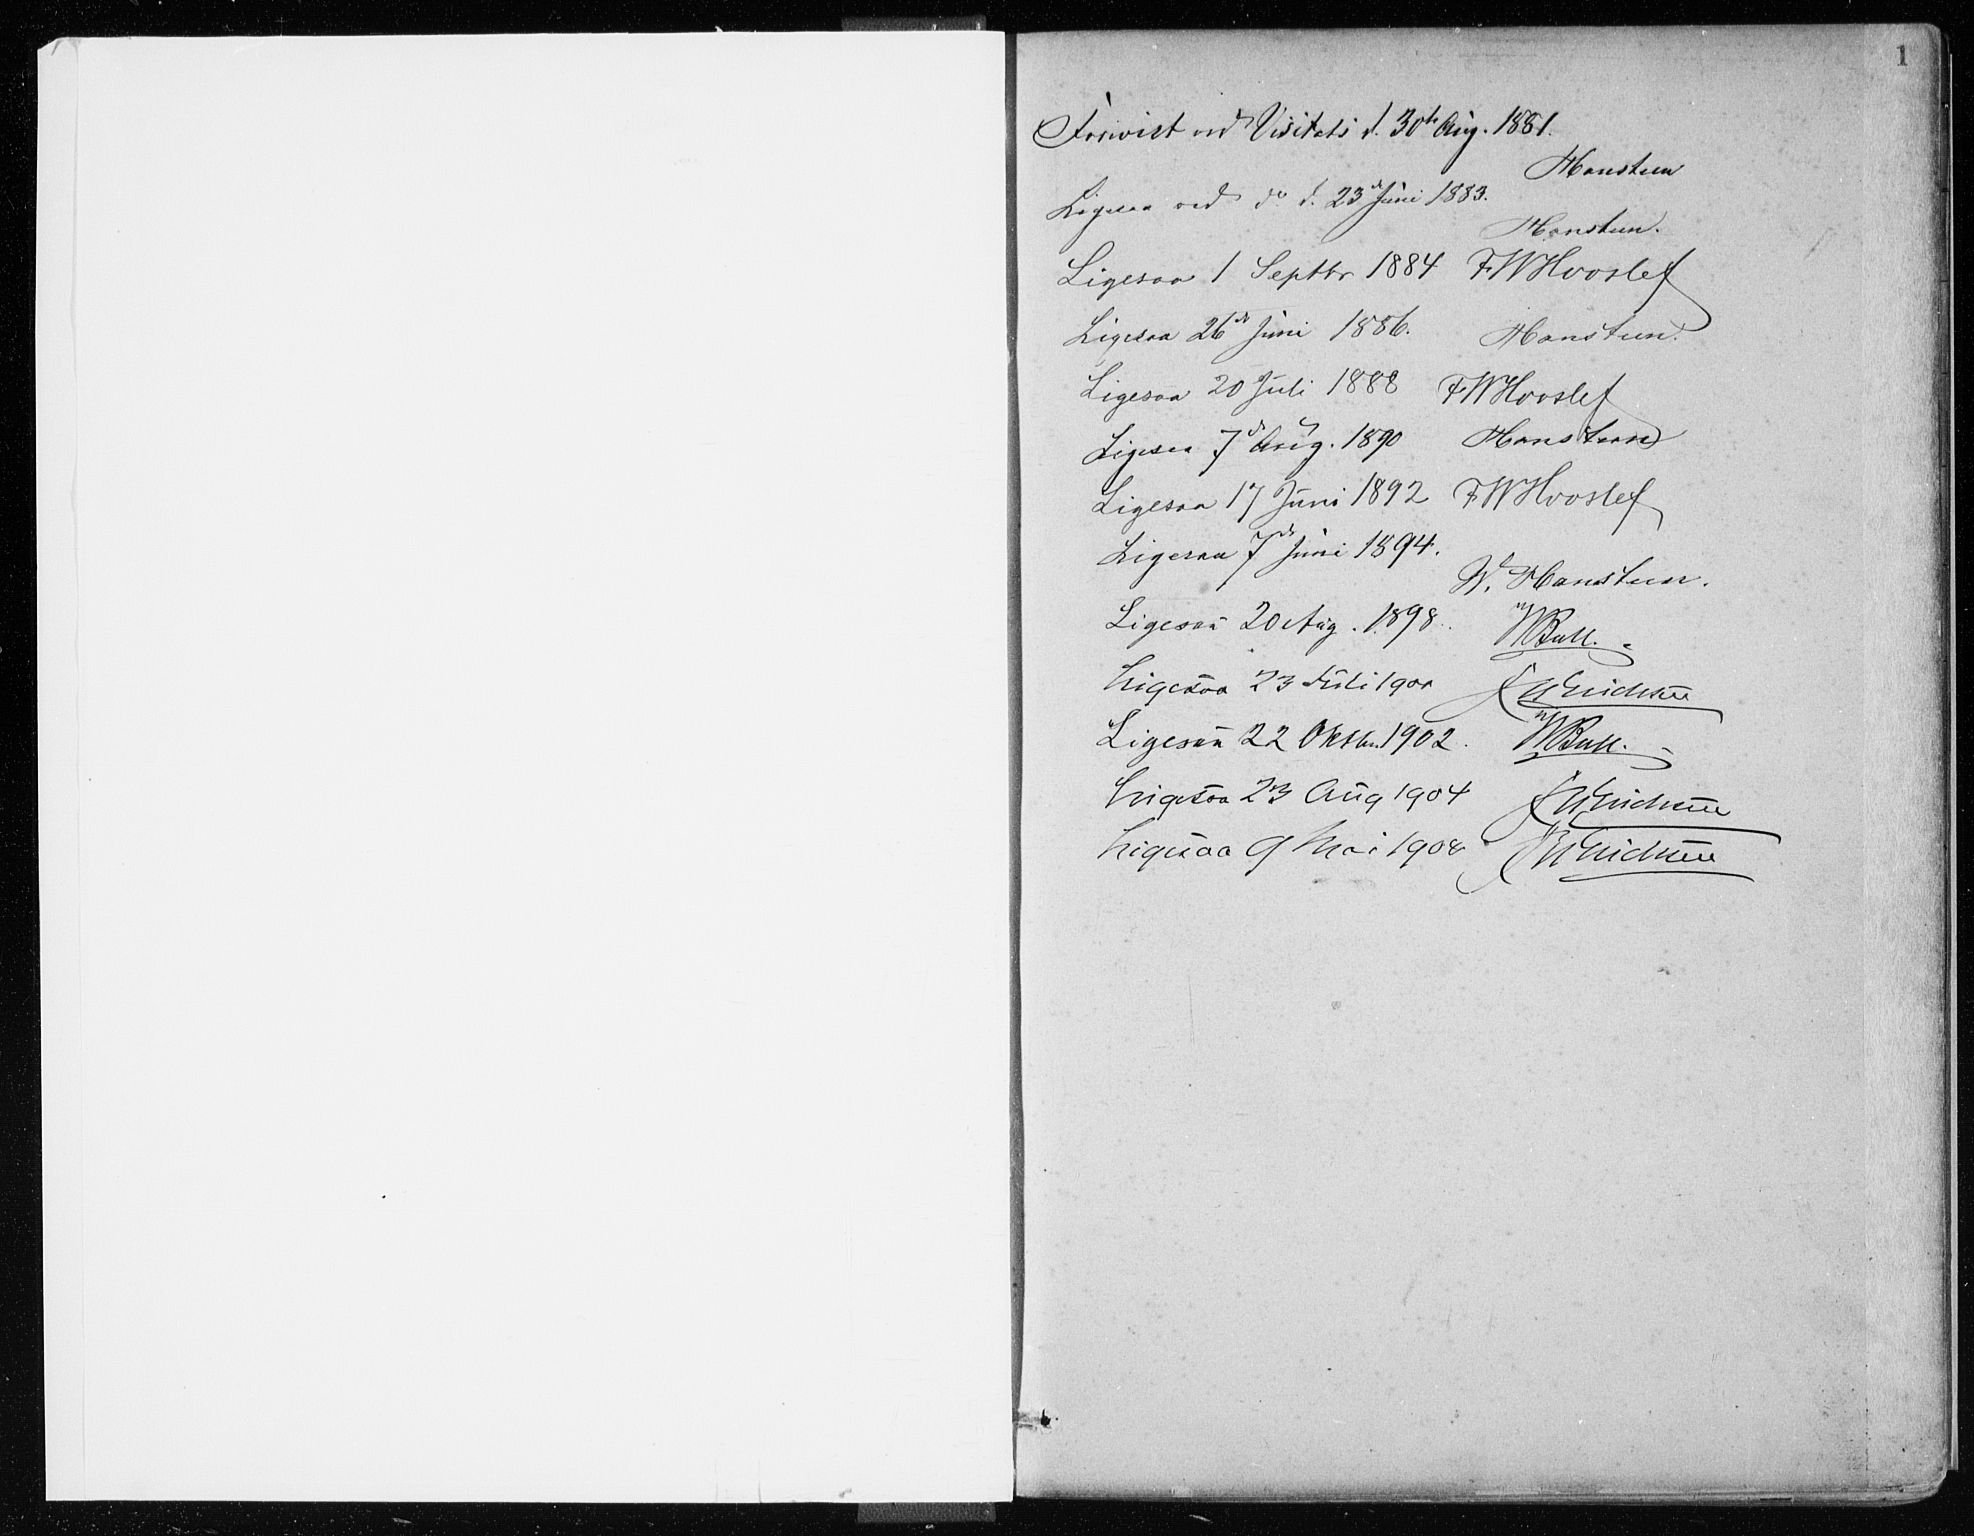 1
Forevist ved Visitats d. 30te Aug. 1881.
Hansteen
Ligesaa ved do d. 23de Juni 1883.
Hansteen.
Ligesaa 1 Septbr 1884 FWHvoslef
Ligesaa 26de Juni 1886. Hansteen.
Ligesaa 20 Juli 1888 FWHvoslef
Ligesaa 7de Aug. 1890 Hansteen
Ligesaa 17 Juni 1892 FWHvoslef
Ligesaa 7de Juni 1894.
W. Hansteen.
Ligesaa 20 Aug. 1898. Bull.
Ligesaa 23 Juli 1900
Ligesaa 22 Oktbr. 1902. Bull.
Ligesaa 23 Aug 1904
Ligesaa 9 Mai 1908